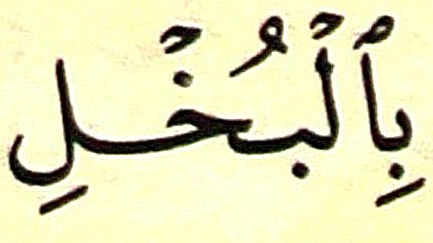 بِٱلْبُخْلِ